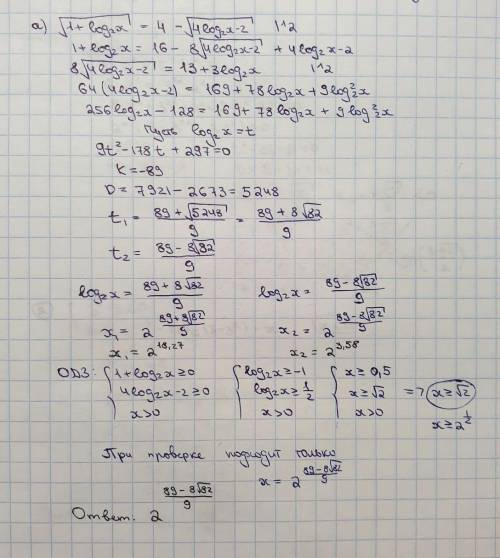 а) √(1+log₂x) = 4 - √(4log₂x-2) |↑2
1+log₂x = 16 - 8√(4log₂x-2) + 4log₂x-2
8√(4log₂x-2) = 13+3log₂x |↑2
64(4log₂x-2) = 169+78log₂x+9log₂²x
256log₂x-128=169+78log₂x+9log₂²x
Пусть log₂x=t
9t²-178t+297=0
K=-89
D=7921-2673=5248
t₁ = (89+√5248)/9 = (89+8√82)/9
t₂ = (89-8√82)/9
log₂x = (89+8√82)/9 log₂x = (89-8√82)/9
x₁ = 2^((89+8√82)/9) x₂ = 2^((89-8√82)/9)
x₁ = 2^18,27 x₂ = 2^3,58
ОДЗ: { 1+log₂x≥0 { log₂x≥-1 { x≥0,5
4log₂x-2≥0 log₂x≥1/2 x≥√2 => x≥√2
x>0 x>0 x>0 x≥2^(1/2)
При проверке подходит только
x = 2^((89-8√82)/9)
Ответ: 2^((89-8√82)/9)